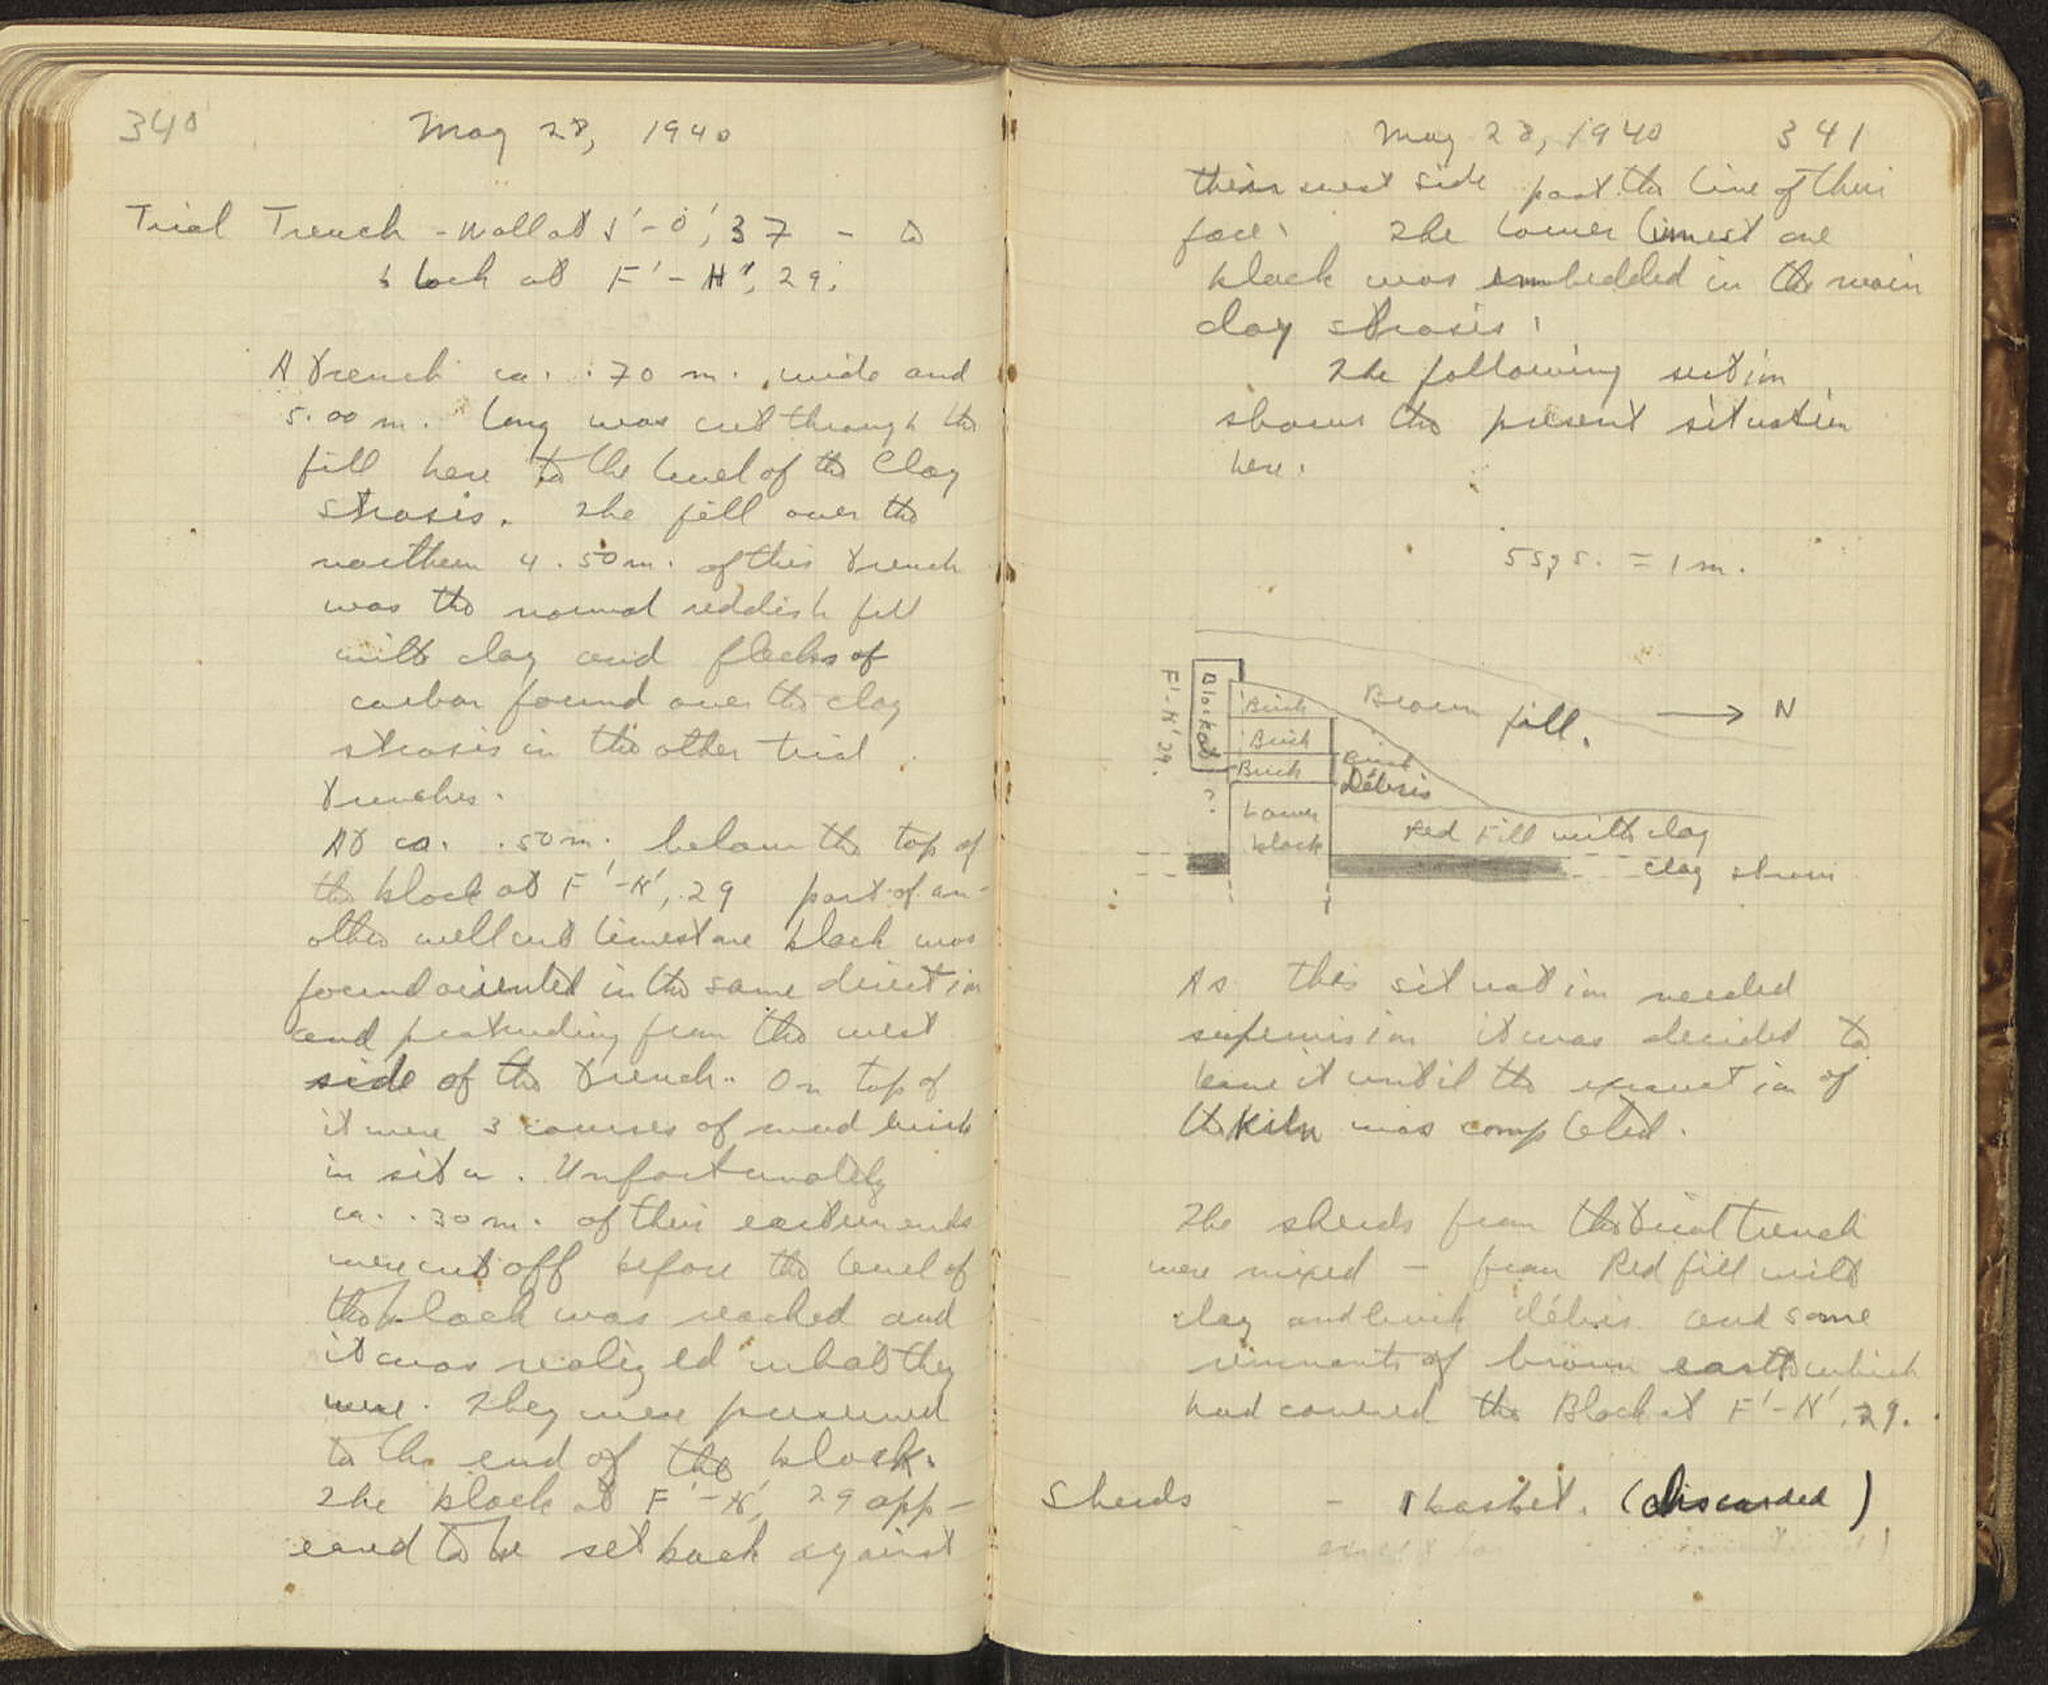 340
May 28, 1940
Trial Trench - Wall at J'-O', 37 - to
block at F'-H', 29.
A trench ca. .70 m. wide and
5.00 m. long was cut through the
fill here to the level of the clay
strosis. The fill over the
northern 4.50 m. of this trench
was the normal reddish fill
with clay and flecks of
carbon found over the clay
strosis in the other trial
trenches.
At ca. .50 m. below the top of
the block at F'-H', 29 part of an-
other well cut limestone block was
found oriented in the same direction
and protruding from the west
side of the trench. On top of
it were 3 courses of mud brick
in situ. Unfortunately
ca. .30 m. of their eastern ends
were cut off before the level of
the block was reached and
it was realized what they
were. They were preserved
to the end of the block.
The block at F'-H', 29 app-
eared to be set back against
May 28, 1940 341
their west side past the line of their
face. The lower limestone
block was embedded in the main
clay strosis.
The following section
shows the present situation
here.
5 sqs. = 1 m.
Block at
F'-H' 29.
?
Brick
Brick
Brick
Lower
block
Brick
Débris
Brown fill.
N
Red Fill with clay
clay strosis
As this situation needed
supervision it was decided to
leave it until the excavation of
the Kiln was completed.
The sherds from the trial trench
were mixed - from Red fill with
clay and brick débris and some
remnants of brown earth which
had covered the Block at F'-H', 29.
Sherds - 1 basket. (discarded)